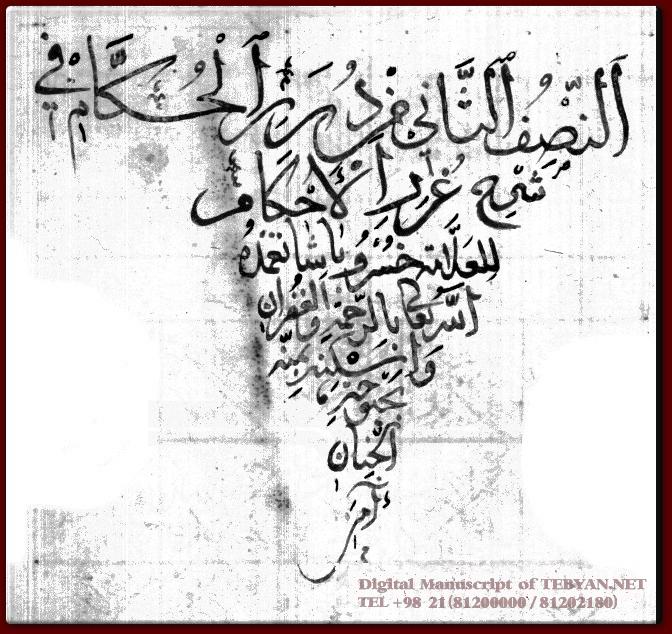 النصف الثاني من درر الحكام في
شرح غرر الأحكام
للعلامة خسرو باشا تغمده
الله تعالى بالرحمة والغفران
وأسكنه بمنه
بحبوحة
الجنان
آمين
Digital Manuscript of TEBYAN.NET
TEL +98 21(81200000 / 81202180)